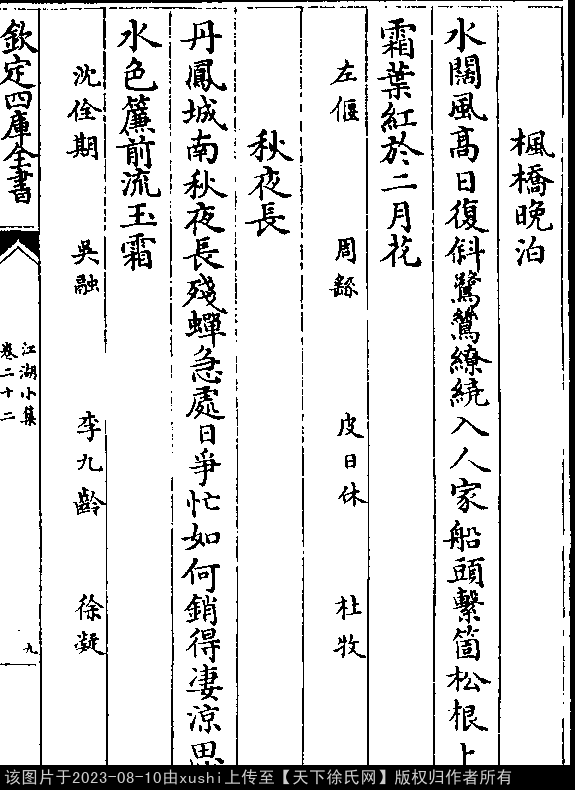 楓橋晚泊
水闊風高日復斜鷺鷥繚繞入人家船頭繫箇松根上
霜葉紅於二月花
左偃 周繇 皮日休 杜牧
秋夜長
丹鳳城南秋夜長殘蟬急處日爭忙如何銷得凄涼思
水色簾前流玉霜
沈佺期 吳融 李九齡 徐凝
欽定四庫全書
江湖小集
卷二十二
九
该图片于2023-08-10由xushi上传至【天下徐氏网】版权归作者所有